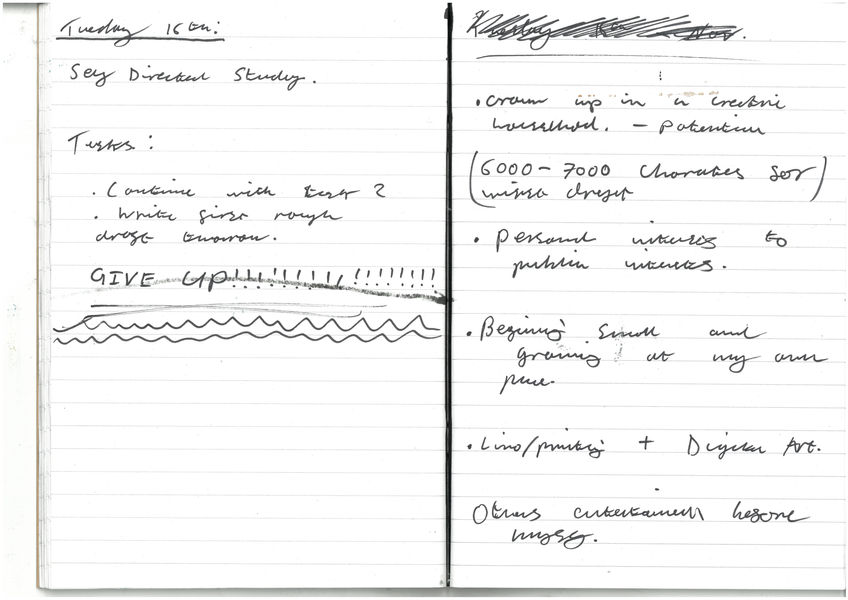 Tuesday 16th:
Self Directed Study.
Tasks:
. Continue with Essay 2
. Write first rough
draft tomorrow.
GIVE UP!!!!!!!!!!!!!!!!!!
Nov.
• Grown up in a creative
household. – Potential
(6000 – 7000 Charates for
draft)
• Personal interests to
public interests.
• Begining small and
growing at my own
pace.
• Lino/printing + Digital Art.
Others entertainment before
myself.